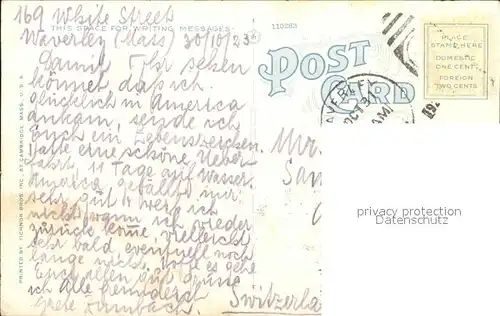 169 White Street
THIS SPACE FOR WRITING MESSAGES
Waverley, Mass 30/10/23
110263
POST CARD
PLACE
STAMP HERE
DOMESTIC
ONE CENT
FOREIGN
TWO CENTS
WAVERLEY
OCT 31
AM
192
Damit Ihr sehen
könnet, dass ich
glücklich in America
ankam, sende ich
Euch ein Lebenszeichen.
Hatte eine schöne Ueber-
fahrt 11 Tage auf Wasser.
America gefällt mir
sehr gut & weiß ich
nicht wann ich wieder
zurück kome, vielleicht
sehr bald eventuell noch
lange nicht. Wie es gehe
Euch allen gut Grüsse
ich Alle
Grete
Mr.
Switzerla
PRINTED BY TICHNOR BROS. INC., AT CAMBRIDGE, MASS., U. S. A.
privacy protection
Datenschutz